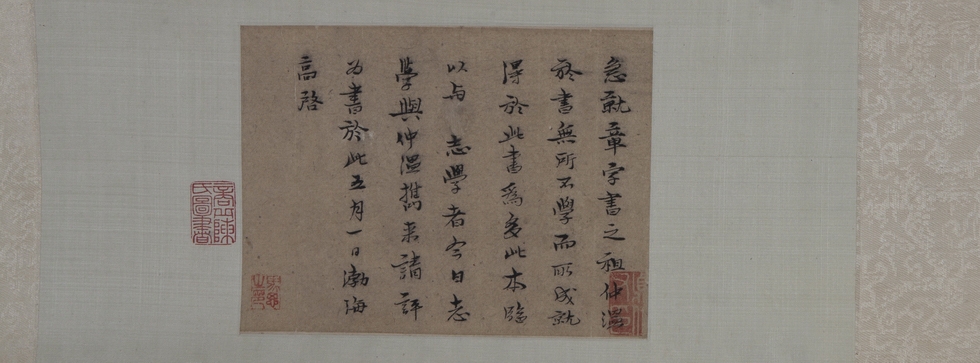 急就章字書之祖仲溫
於書無所不學而所成就
得於此書為多此本臨
以與志學者今日志
學與仲溫攜來請評
為書於此五月一日渤海
高啓
氏圖書